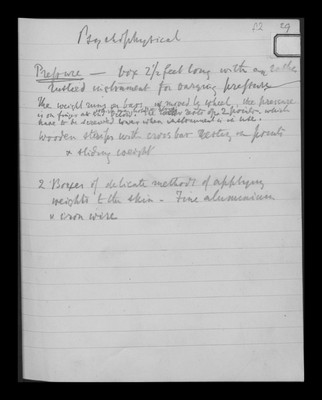 P2 29
Psychophysical
Pressure — box 2 1/2 feet long with an
Rusted instrument for varying pressure
The weight runs on bars & moved by wheel, the pressure
is on finger at
have to be screwed lower when instrument is in use.
Wooden stamps with cross bar resting on points
& sliding weight
2 Boxes of delicate methods of applying
weights to the skin - Fine aluminium
& iron wire